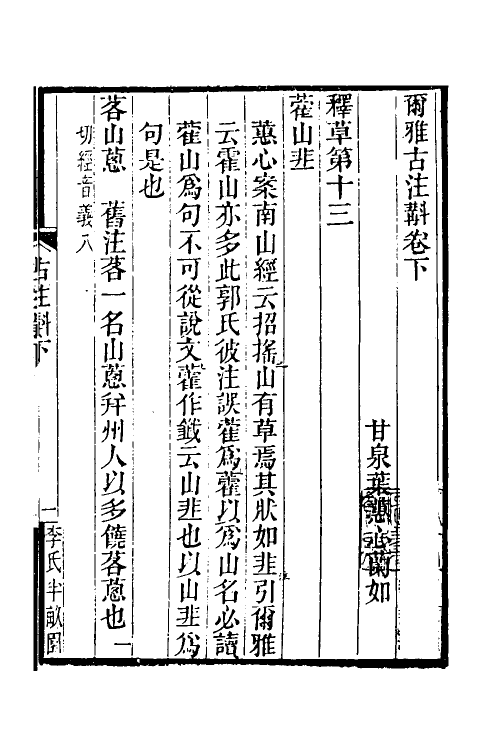 爾雅古注斠卷下
甘泉葉蕙心蘭如
釋草第十三
藿山韭
蕙心案南山經云招搖山有草焉其狀如韭引爾雅
云霍山亦多此郭氏彼注誤藿爲藿以爲山名必讀
藿山爲句不可從說文藿作韱云山韭也以山韭爲
句是也
茖山蔥　舊注茖一名山蔥幷州人以多饒茖蔥也一
切經音義八
古注斠下
一
李氏半畝園